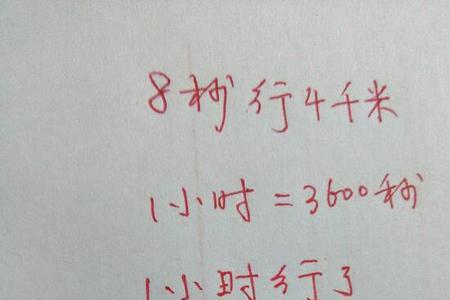 8秒行4千米
1小时=3600秒
1小时行了